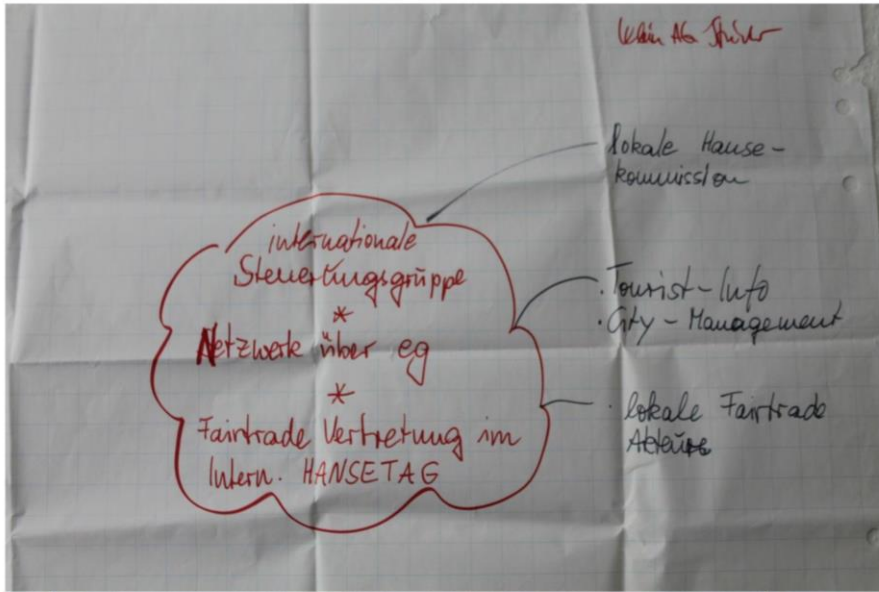 lokale Hanse-
kommission
internationale
Steuerungsgruppe
*
Netzwerk über eg
*
Fairtrade Vertretung im
Intern. HANSETAG
· Tourist-Info
· City-Management
· lokale Fairtrade
Akteure